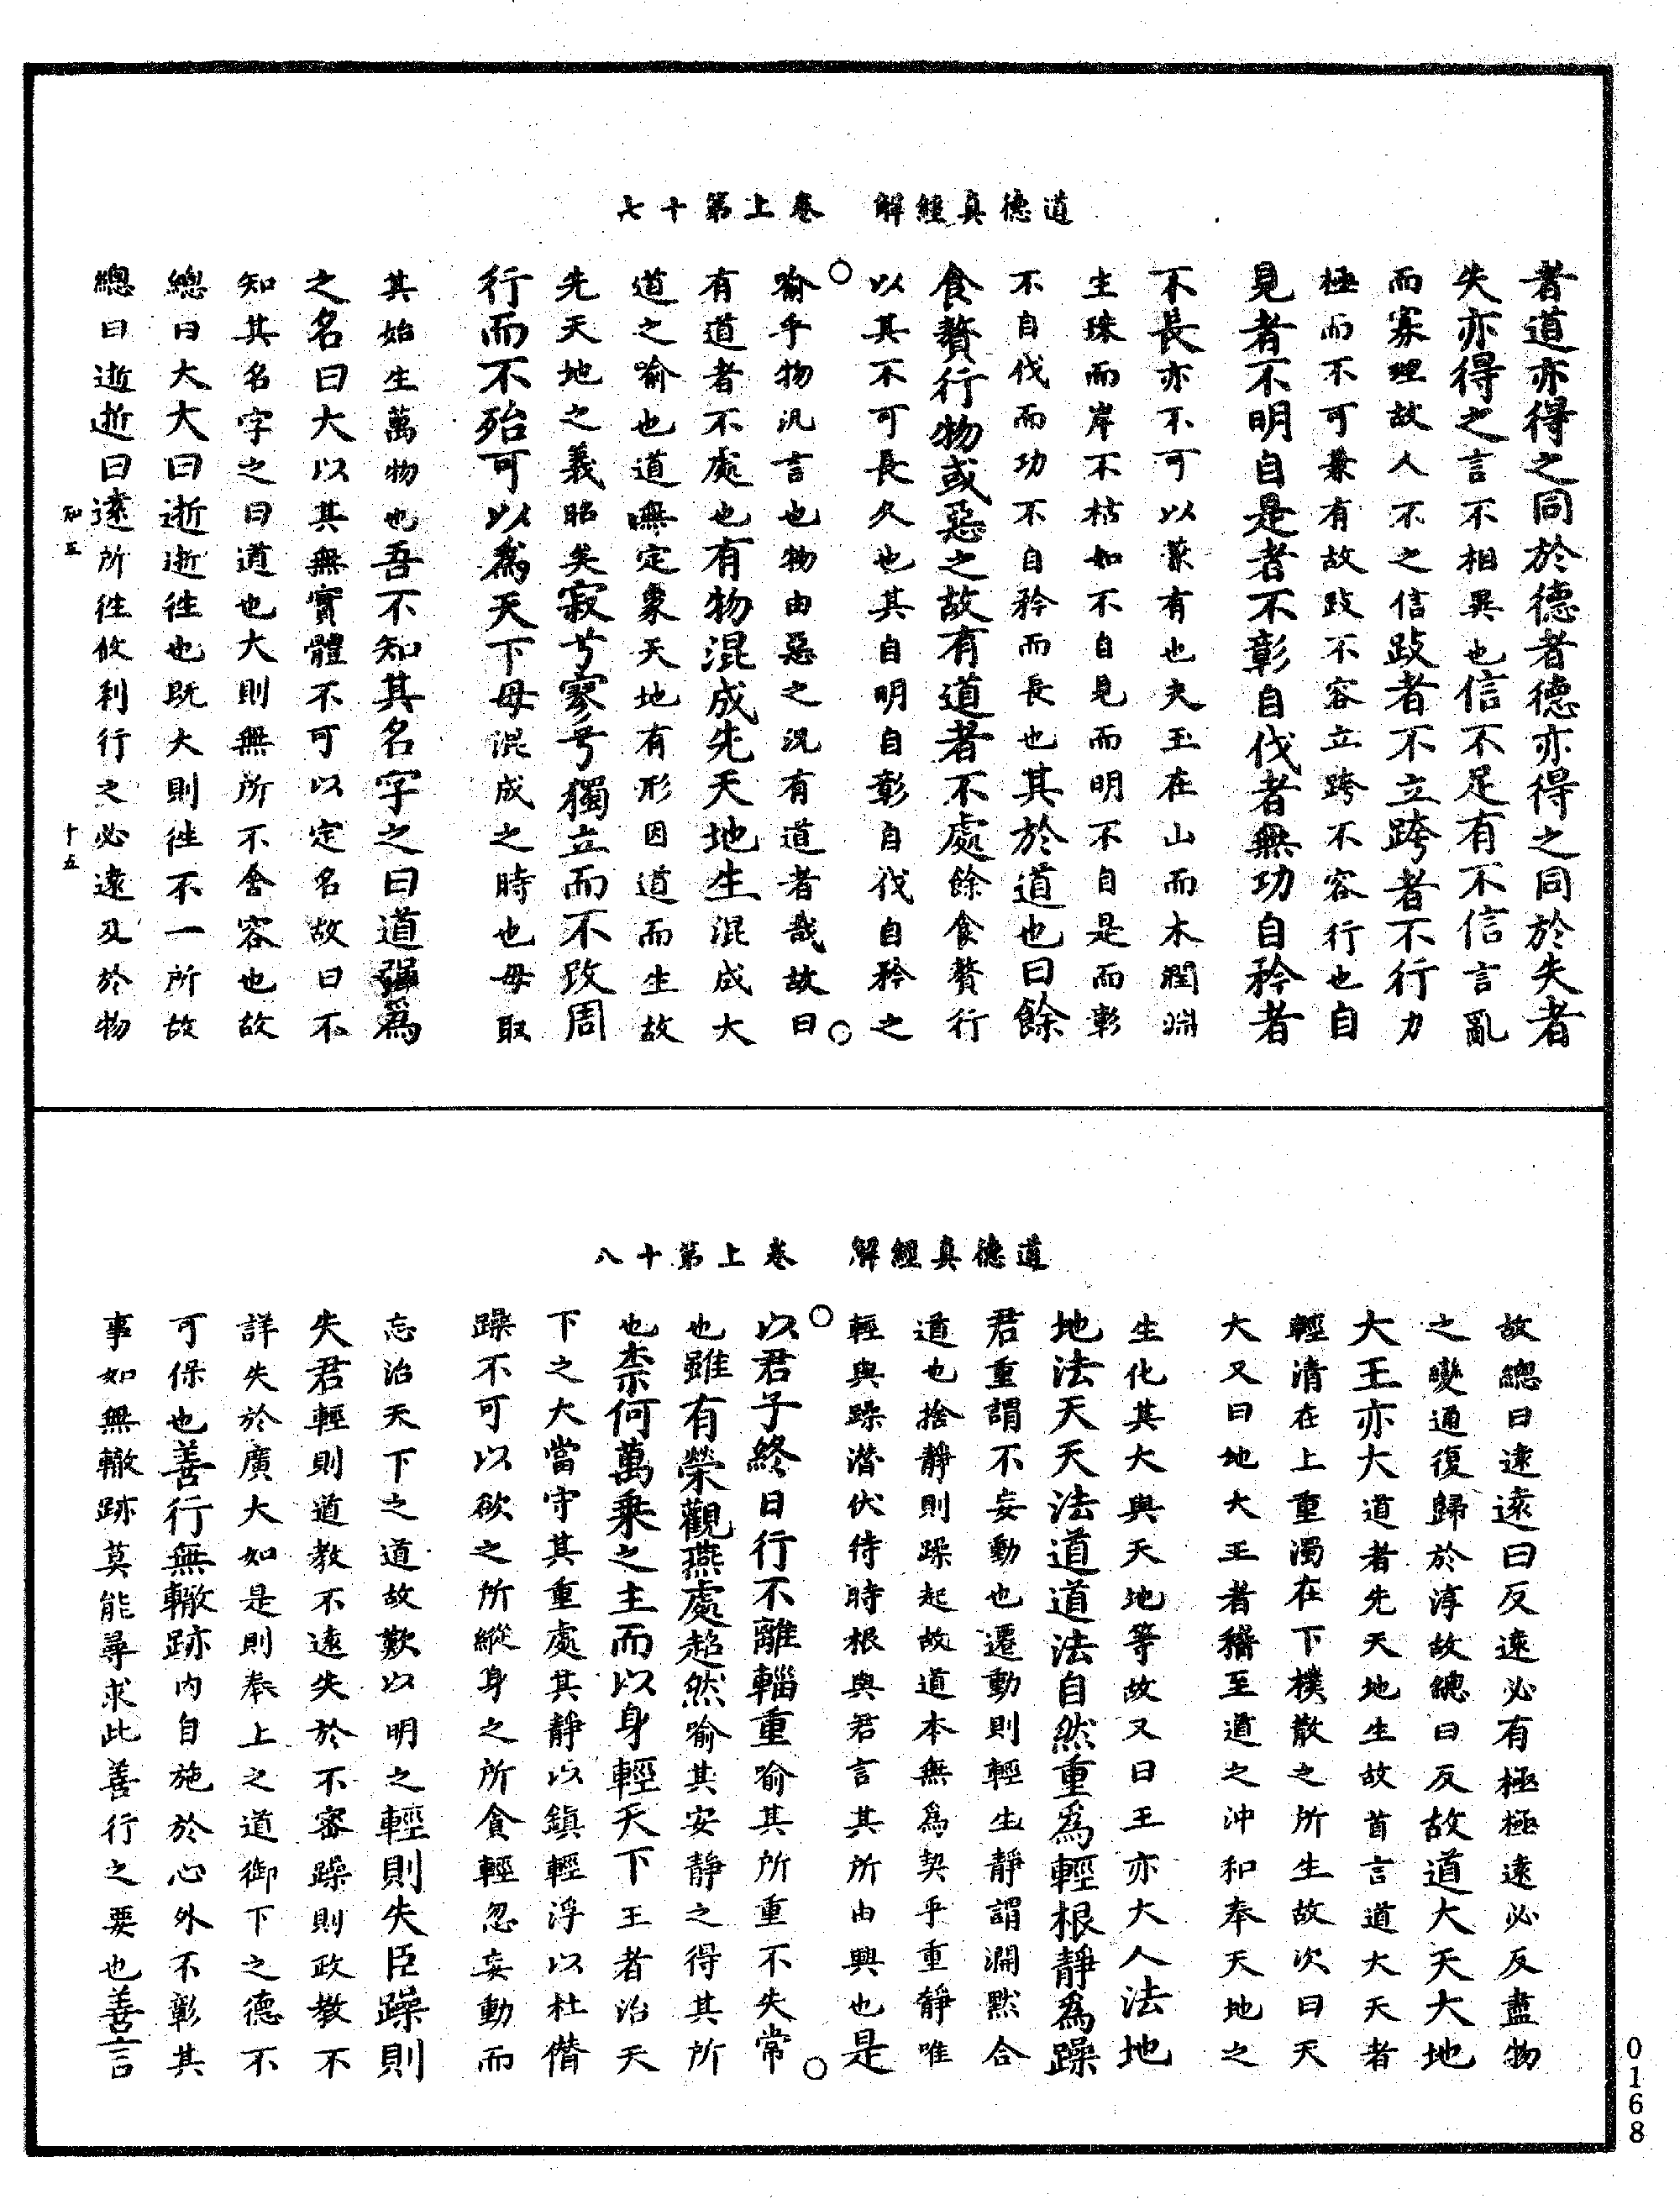 道德真經解　卷上第十七
者道亦得之同於德者德亦得之同於失者
失亦得之言不相異也信不足有不信言亂
而寡理故人不之信跂者不立跨者不行力
極而不可兼有故跂不容立跨不容行也自
見者不明自是者不彰自伐者無功自矜者
不長亦不可以兼有也夫玉在山而木潤淵
生珠而岸不枯如不自見而明不自是而彰
不自伐而功不自矜而長也其於道也曰餘
食贅行物或惡之故有道者不處餘食贅行
以其不可長久也其自明自彰自伐自矜之
喻乎物汎言也物由惡之況有道者哉故曰
有道者不處也有物混成先天地生混成大
道之喻也道無定象天地有形因道而生故
先天地之義昭矣寂兮寥兮獨立而不改周
行而不殆可以為天下母混成之時也母取
其始生萬物也吾不知其名字之曰道強為
之名曰大以其無實體不可以定名故曰不
知其名字之曰道也大則無所不舍容也故
總曰大大曰逝逝往也既大則往不一所故
總曰逝逝曰遠所往攸利行之必遠及於物
知五
十五
道德真經解　卷上第十八
故總曰遠遠曰反遠必有極極遠必反盡物
之變通復歸於淳故總曰反故道大天大地
大王亦大道者先天地生故首言道大天者
輕清在上重濁在下樸散之所生故次曰天
大又曰地大王者稽至道之沖和奉天地之
生化其大與天地等故又曰王亦大人法地
地法天天法道道法自然重為輕根靜為躁
君重謂不妄動也遷動則輕生靜謂淵默合
道也捨靜則躁起故道本無為契乎重靜唯
輕與躁潛伏待時根與君言其所由興也是
以君子終日行不離輜重喻其所重不失常
也雖有榮觀燕處超然喻其安靜之得其所
也柰何萬乘之主而以身輕天下王者治天
下之大當守其重處其靜以鎮輕浮以杜僭
躁不可以欲之所縱身之所貪輕忽妄動而
忘治天下之道故歎以明之輕則失臣躁則
失君輕則道教不遠失於不審躁則政教不
詳失於廣大如是則奉上之道御下之德不
可保也善行無轍跡內自施於心外不彰其
事如無轍跡莫能尋求此善行之要也善言
0168